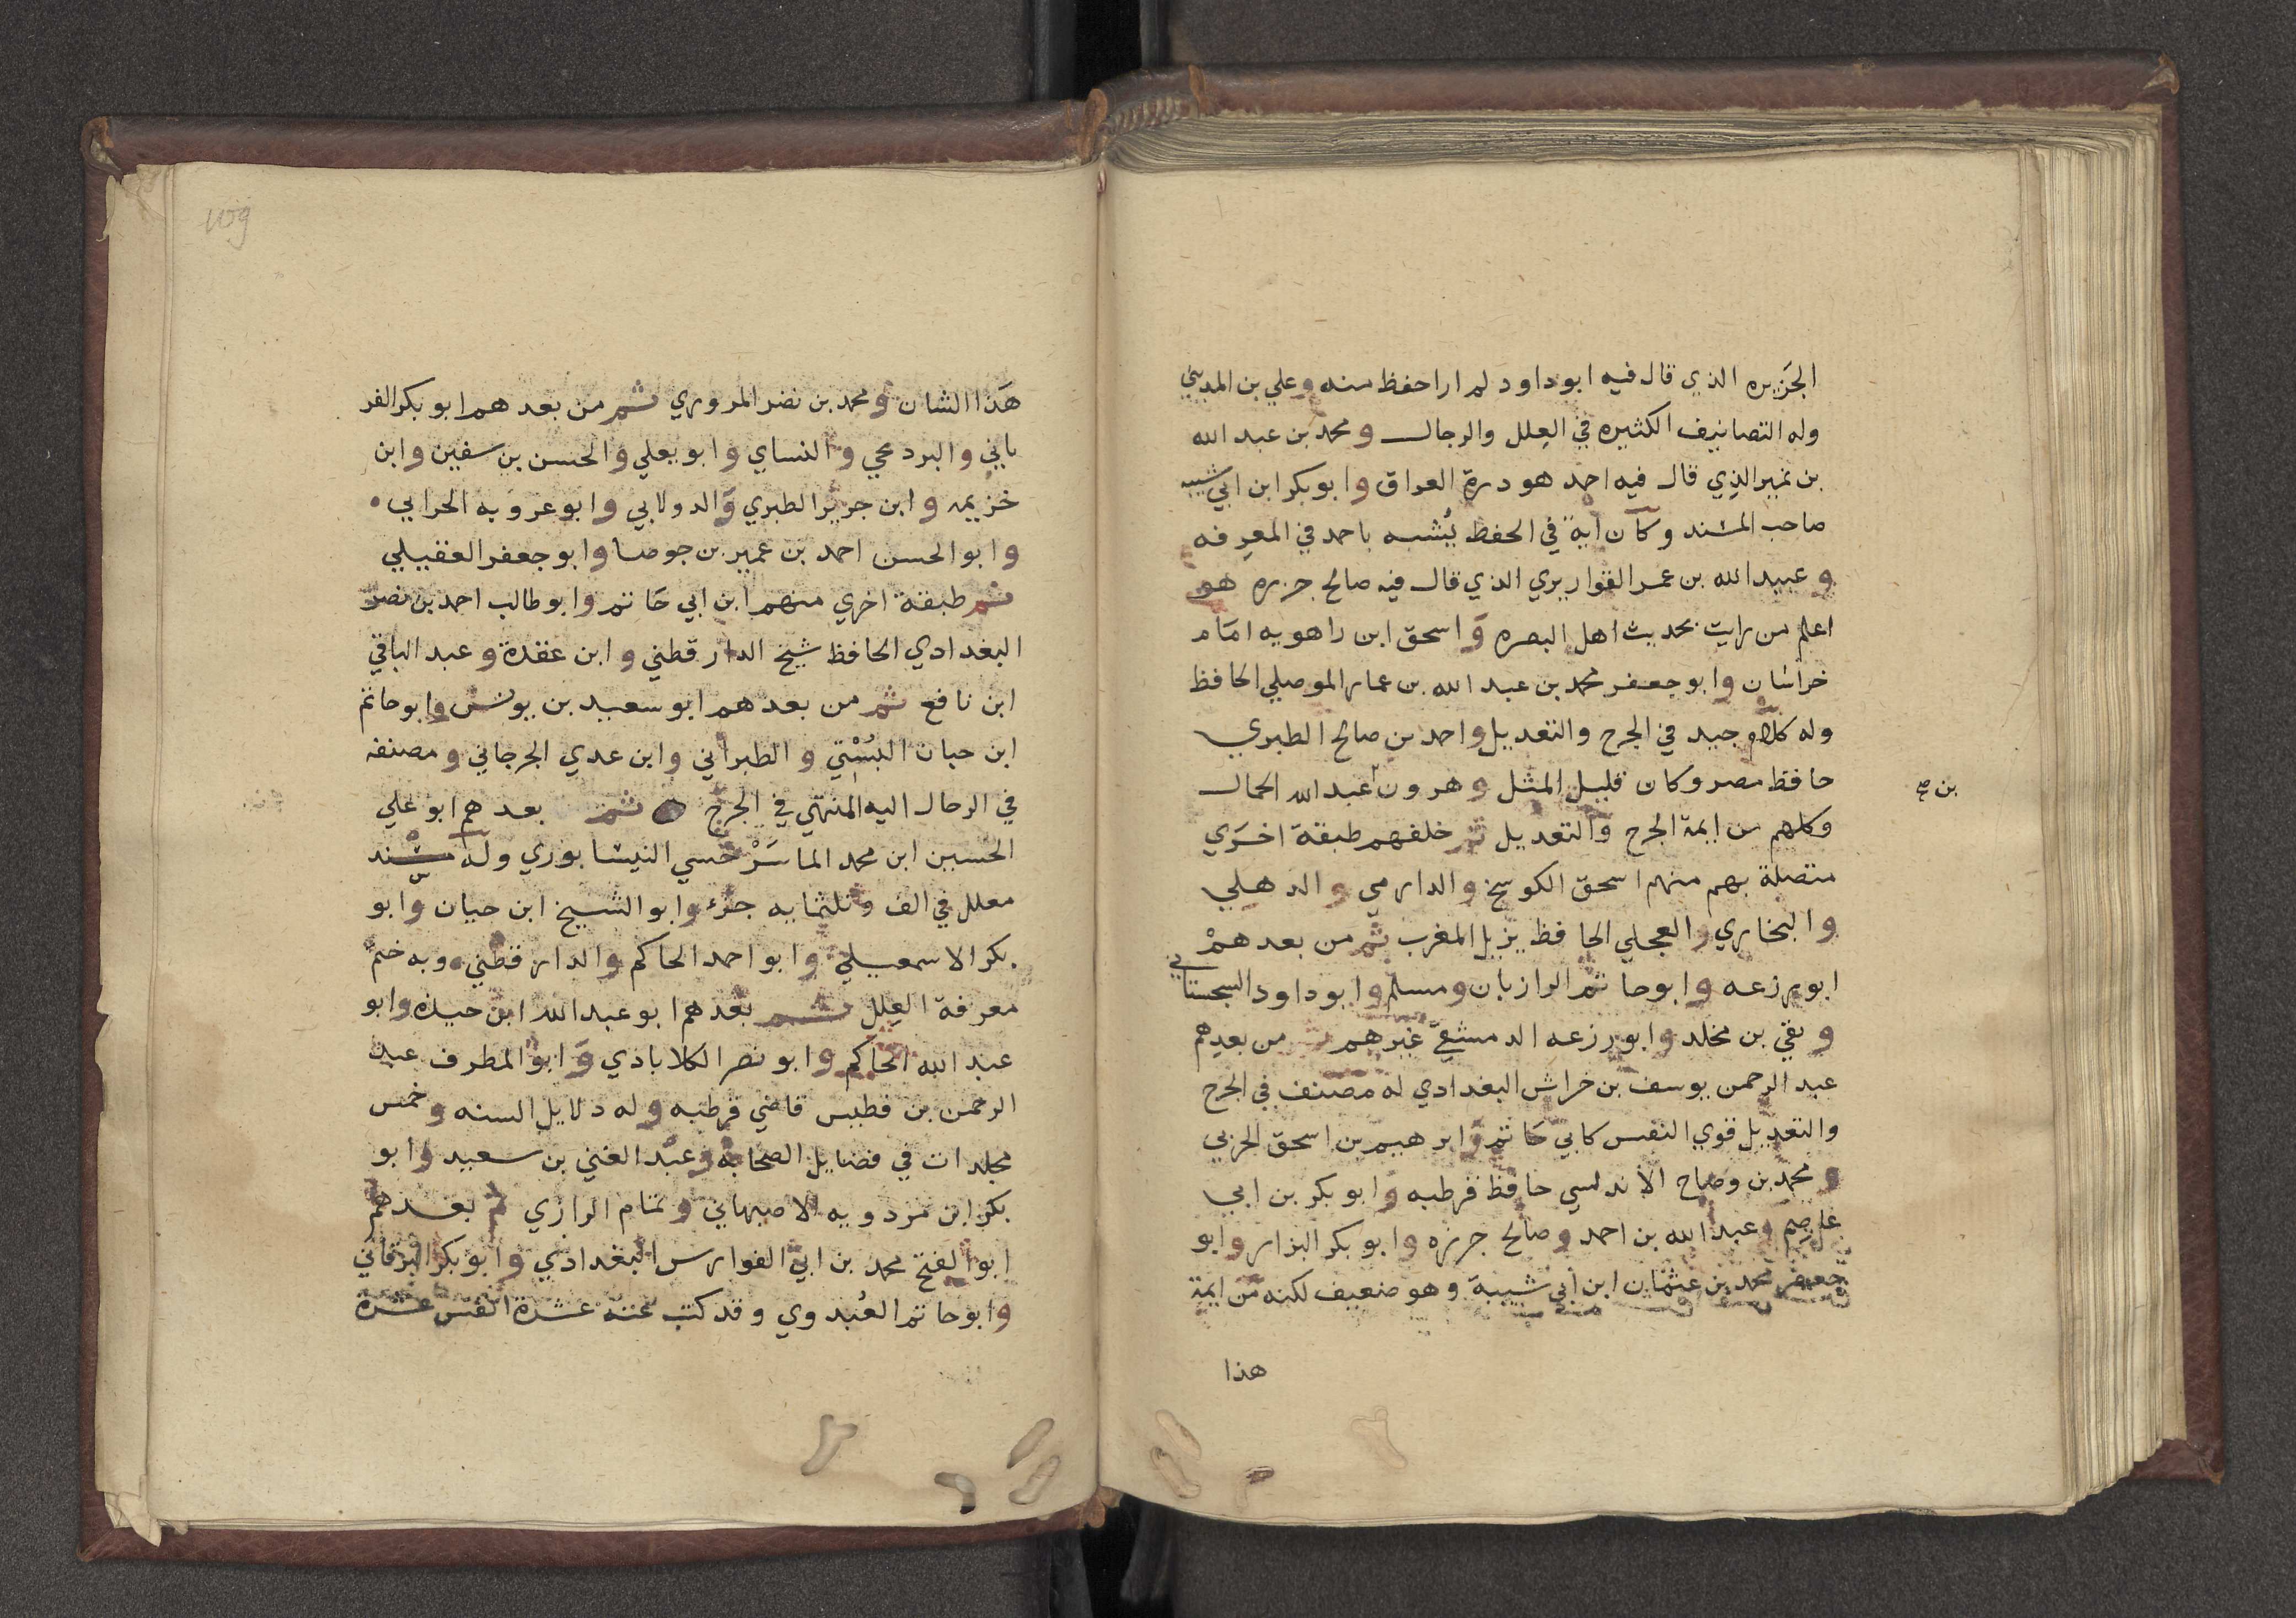 الجزيره الذي قال فيه ابوداود لم ار احفظ منه وعلي بن المديني
وله التصانيف الكثيره في العلل والرجال ومحمد بن عبد الله
بن نمير الذي قال فيه احمد هو درة العراق وابو بكر ابن ابي شيبه
صاحب المسند وكان آية في الحفظ يُشبه باحمد في المعرفه
وعبيد الله بن عمر القواريري الذي قال فيه صالح جزره هو
اعلم من رايت بحديث اهل البصره وَاسحق ابن راهويه امام
خراسان وابو جعفر محمد بن عبد الله بن عمار الموصلي الحافظ
وله كلام جيد في الجرح والتعديل واحمد بن صالح الطبري
حافظ مصر وكان قليل المثل وهرون عبد الله الحمال
بن صح
وكلهم من ايمة الجرح والتعديل ثم خلفهم طبقة اخرَي
متصلة بهم منهم اسحق الكوسج والدارمي والذهلي
والبخاري والعجلي الحافظ نزيل المغرب ثم من بعدهمْ
ابو زرعه وابو حاتم الرازيان ومسلم وابو داود السجستاني
وبقي بن مخلد وابو زرعه الدمشقي غيرهم ثم من بعدهم
عبد الرحمن يوسف بن خراش البغدادي له مصنف في الجرح
والتعديل قوي النفس كابي حَاتم وَابرهيم بن اسحق الحربي
ومحمد بن وضاح الاندلسي حافظ قرطبه وابو بكر بن ابي
عاصم وعبد الله بن احمد وصالح جزره وابو بكر البزار وابو
جعفر محمد بن عثمان ابن ابي شيبة وهو ضعيف لكنه من ايمة
هذا
هَذا الشان ومحمد بن نصر المروزي ثم من بعدهم ابو بكر الفر
يابي والبردعجي والنساي وابو يعلي والحسن بن سفين وابن
خزيمه وابن جرير الطبري وَالدولابي وابو عروبه الحرابي
وابو الحسن احمد بن عمير بن جوصا وابو جعفر العقيلي
ثم طبقة اخري منهم ابن ابي حَاتم وابو طالب احمد بن نصر
البغدادي الحافظ شيخ الدارقطني وابن عقدة وعبد الباقي
ابن نافع ثم من بعدهم ابو سعيد بن يونس وابو حاتم
ابن حبان البُسْتي والطبراني وابن عدي الجرجاني ومصنفه
في الرجال اليه المنتهي في الجرح ثم بعدهم ابو علي
الحسين ابن محمد الماسَرْخسي النيشابوري وله مسند
معلل في الف وثلثمايه جزء وابو الشيخ ابن حبان وابو
بكر الاسمعيلي وابو احمد الحاكم والدارقطني وبه ختم
معرفة العلل ثم بعدهم ابو عبد الله ابن حيده وابو
عبد الله الحاكم وابو نصر الكلابادي وَابو المطرف عبد
الرحمن بن فطيس قاضي قرطبه وله دلايل السنه وخمس
مجلدات في فضايل الصحابة وعبد الغني بن سعيد وابو
بكر ابن مردويه الاصبهاني وتمام الرازي ثم بعدهم
ابو الفتح محمد بن ابي الفوارس البغدادي وابو بكر البرقاني
وابو حاتم العُبدوي وقد كتب عنه عشرة انفس عشرة